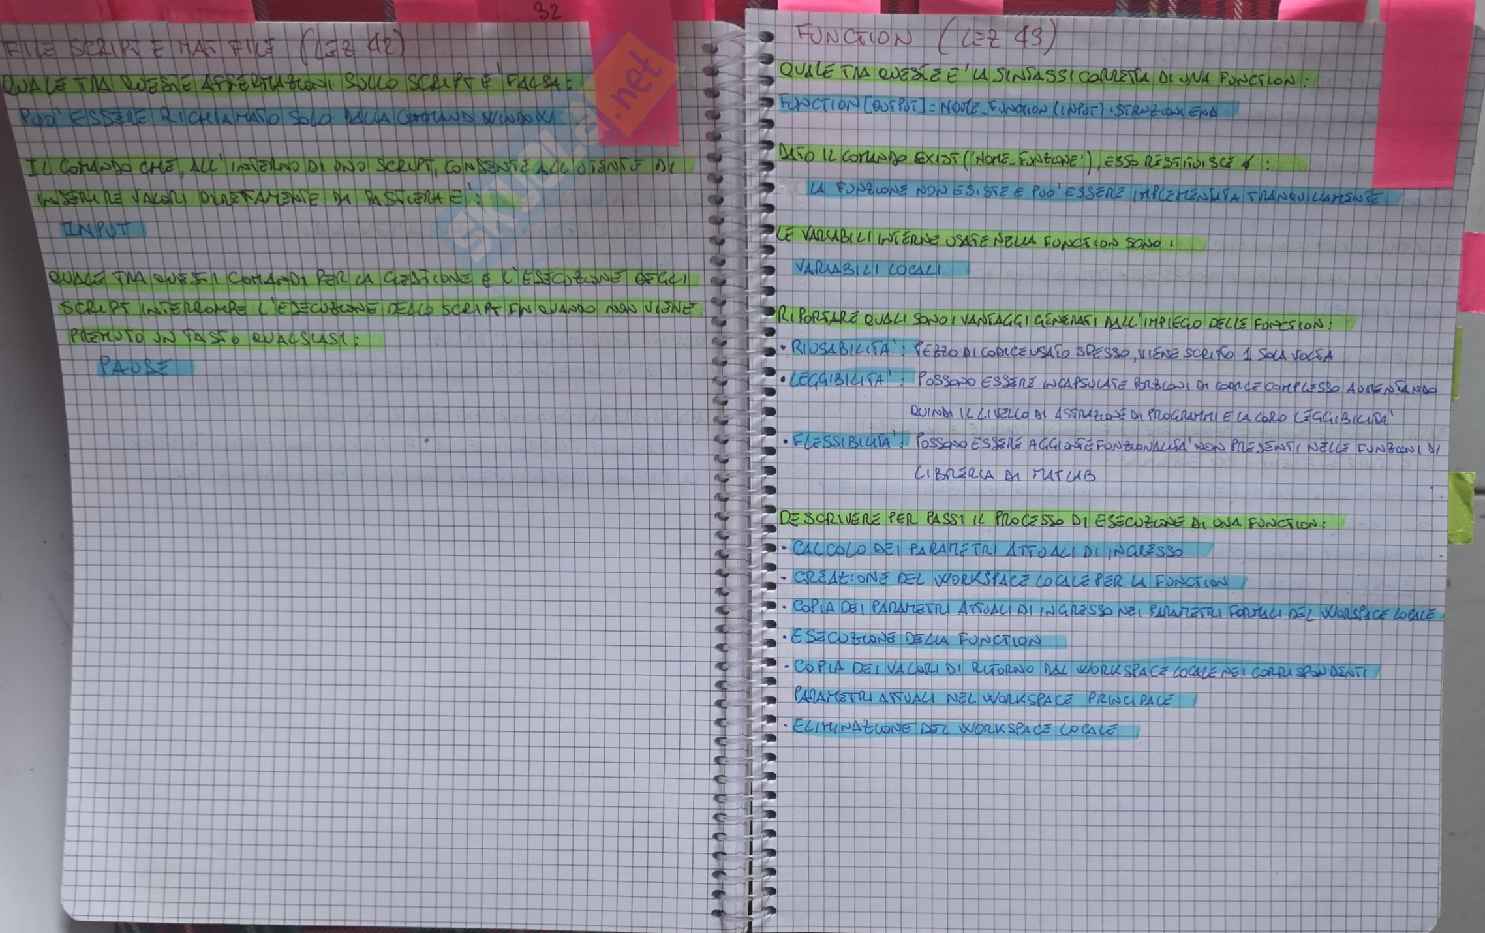 32
FILE SCRIPT E MAT FILE (LEZ 42)
QUALE TRA QUESTE AFFERMAZIONI SULLO SCRIPT E' FALSA:
PUO' ESSERE RICHIAMATO SOLO DALLA COMMAND WINDOW
IL COMANDO CHE, ALL'INTERNO DI UNO SCRIPT, CONSENTE ALL'UTENTE DI
INSERIRE VALORI DIRETTAMENTE DA TASTIERA E':
INPUT
QUALE TRA QUESTI COMANDI PER LA GESTIONE E L'ESECUZIONE DEGLI
SCRIPT INTERROMPE L'ESECUZIONE DELLO SCRIPT FIN QUANDO NON VIENE
PREMUTO UN TASTO QUALSIASI:
PAUSE
SKUOLA.net
FUNCTION (LEZ 43)
QUALE TRA QUESTE E' LA SINTASSI CORRETTA DI UNA FUNCTION:
FUNCTION [OUTPUT] = NOME_FUNCTION (INPUT) ISTRUZIONI END
DATO IL COMANDO EXIST ('NOME_FUNZIONE'), ESSO RESTITUISCE :
LA FUNZIONE NON ESISTE E PUO' ESSERE IMPLEMENTATA TRANQUILLAMENTE
LE VARIABILI INTERNE USATE NELLA FUNCTION SONO:
VARIABILI LOCALI
RIPORTARE QUALI SONO I VANTAGGI GENERATI DALL'IMPIEGO DELLE FUNCTION:
• RIUSABILITA': PEZZO DI CODICE USATO SPESSO, VIENE SCRITTO 1 SOLA VOLTA
• LEGGIBILITA': POSSONO ESSERE INCAPSULATE PORZIONI DI CODICE COMPLESSO AUMENTANDO
QUINDI IL LIVELLO DI ASTRAZIONE DI PROGRAMMI E LA LORO LEGGIBILITA'
• FLESSIBILITA': POSSONO ESSERE AGGIUNTE FUNZIONALITA' NON PRESENTI NELLE FUNZIONI DI
LIBRERIA DI MATLAB
DESCRIVERE PER PASSI IL PROCESSO DI ESECUZIONE DI UNA FUNCTION:
• CALCOLO DEI PARAMETRI ATTUALI DI INGRESSO
• CREAZIONE DEL WORKSPACE LOCALE PER LA FUNCTION
• COPIA DEI PARAMETRI ATTUALI DI INGRESSO NEI PARAMETRI FORMALI DEL WORKSPACE LOCALE
• ESECUZIONE DELLA FUNCTION
• COPIA DEI VALORI DI RITORNO DAL WORKSPACE LOCALE NEI CORRISPONDENTI
PARAMETRI ATTUALI NEL WORKSPACE PRINCIPALE
• ELIMINAZIONE DEL WORKSPACE LOCALE